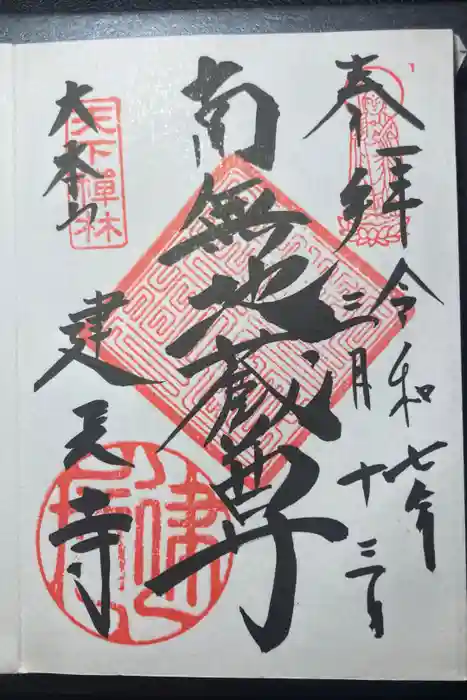 奉拝
令和七年
三月十三日
南無地蔵尊
大本山
建長寺
天下禅林